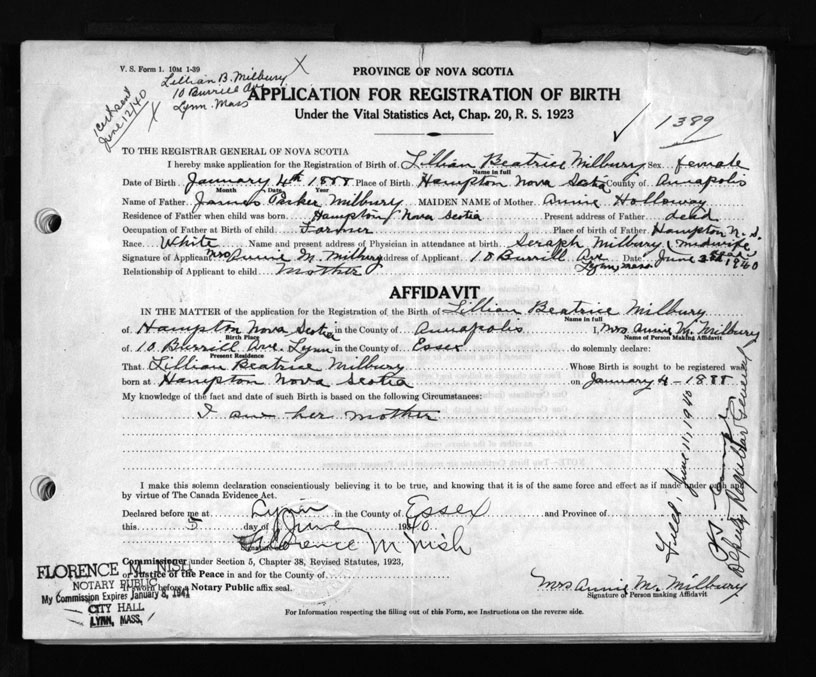 V. S. Form 1. 10M 1-39
Lillian B. Milbury X
10 Burrill Ave
Lynn. Mass
June 12/40 X
PROVINCE OF NOVA SCOTIA
APPLICATION FOR REGISTRATION OF BIRTH
Under the Vital Statistics Act, Chap. 20, R. S. 1923
✓ 1389
TO THE REGISTRAR GENERAL OF NOVA SCOTIA
I hereby make application for the Registration of Birth of Lillian Beatrice Milbury Sex female
Name in full
Date of Birth January 4th 1888 Place of Birth Hampton Nova Scotia County of Annapolis
Month Date Year
Name of Father James Parker Milbury MAIDEN NAME of Mother Annie Holloway
Residence of Father when child was born Hampton Nova Scotia Present address of Father dead
Occupation of Father at Birth of child Farmer Place of Birth of Father Hampton N. S.
Race White Name and present address of Physician in attendance at birth Seraph Milbury (midwife
dead)
Signature of Applicant Mrs Annie M. Milbury Address of Applicant 10 Burrill Ave Date June 1940
Lynn Mass
Relationship of Applicant to child Mother
AFFIDAVIT
IN THE MATTER of the application for the Registration of the Birth of Lillian Beatrice Milbury
Name in full
of Hampton Nova Scotia in the County of Annapolis I, Mrs Annie M. Milbury
Birth Place Name of Person Making Affidavit
of 10 Burrill Ave. Lynn in the County of Essex do solemnly declare:
Present Residence
That Lillian Beatrice Milbury Whose Birth is sought to be registered was
born at Hampton Nova Scotia on January 4 - 1888
My knowledge of the fact and date of such Birth is based on the following Circumstances:
I am her mother
I make this solemn declaration conscientiously believing it to be true, and knowing that it is of the same force and effect as if made under oath and
by virtue of The Canada Evidence Act.
Declared before me at Lynn in the County of Essex and Province of
this 5 day of June 1940
Florence M Nish
Signature
Commissioner under Section 5, Chapter 38, Revised Statutes, 1923,
or Justice of the Peace in and for the County of
If sworn before a Notary Public affix seal.
FLORENCE M. NISH
NOTARY PUBLIC
My Commission Expires January 8, 1941
CITY HALL
LYNN, MASS.
Mrs Annie M. Milbury
Signature of Person making Affidavit
For Information respecting the filling out of this Form, see Instructions on the reverse side.
Filed, June 11, 1940
Deputy Registrar General